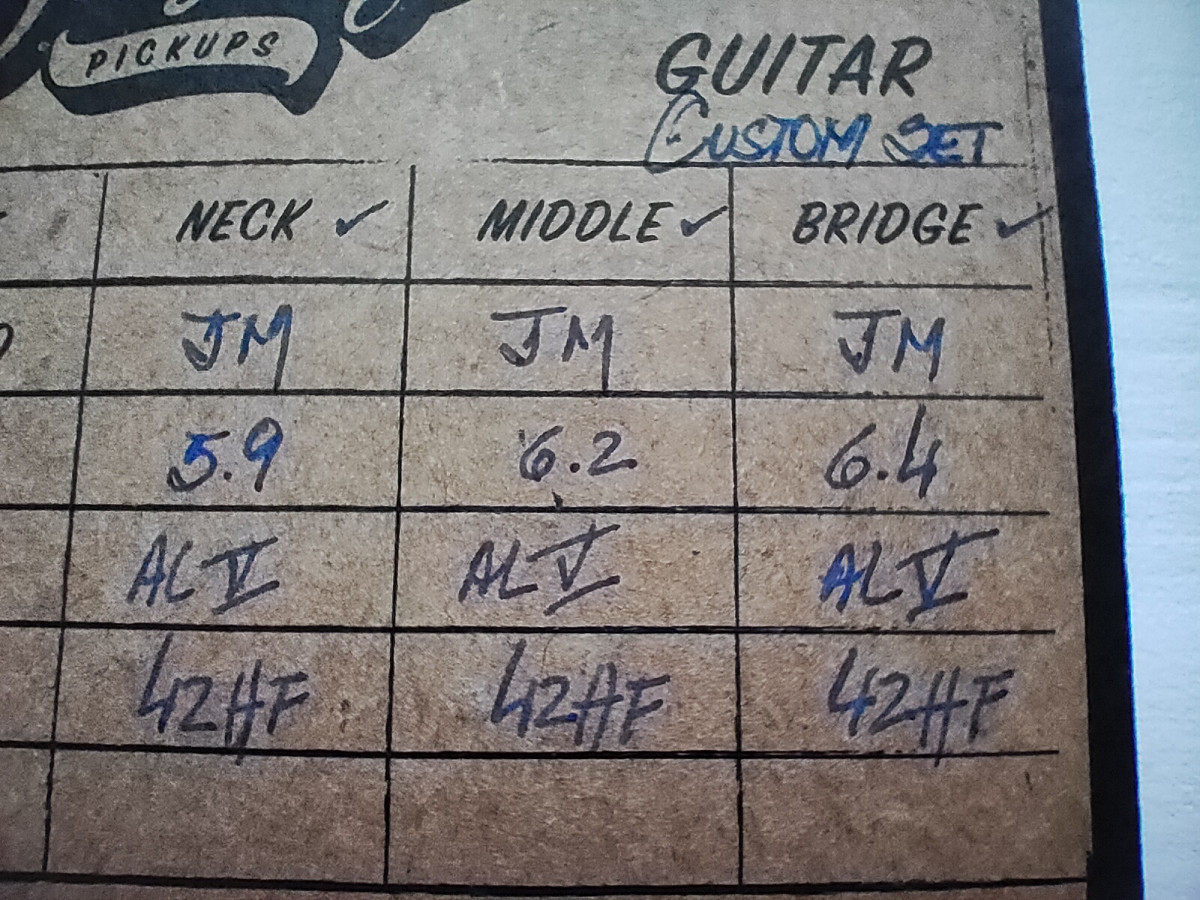 PICKUPS
GUITAR
CUSTOM SET
NECK ✓ MIDDLE ✓ BRIDGE ✓
JM JM JM
5.9 6.2 6.4
AL V AL V AL V
42HF 42HF 42HF